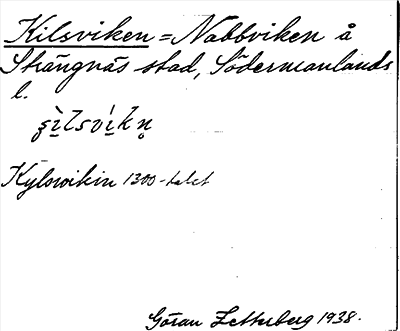 Kilsviken = Nabbviken å
Strängnäs stad, Södermanlands
l.
Kylswikin 1300-talet
Göran Zetterberg 1938.